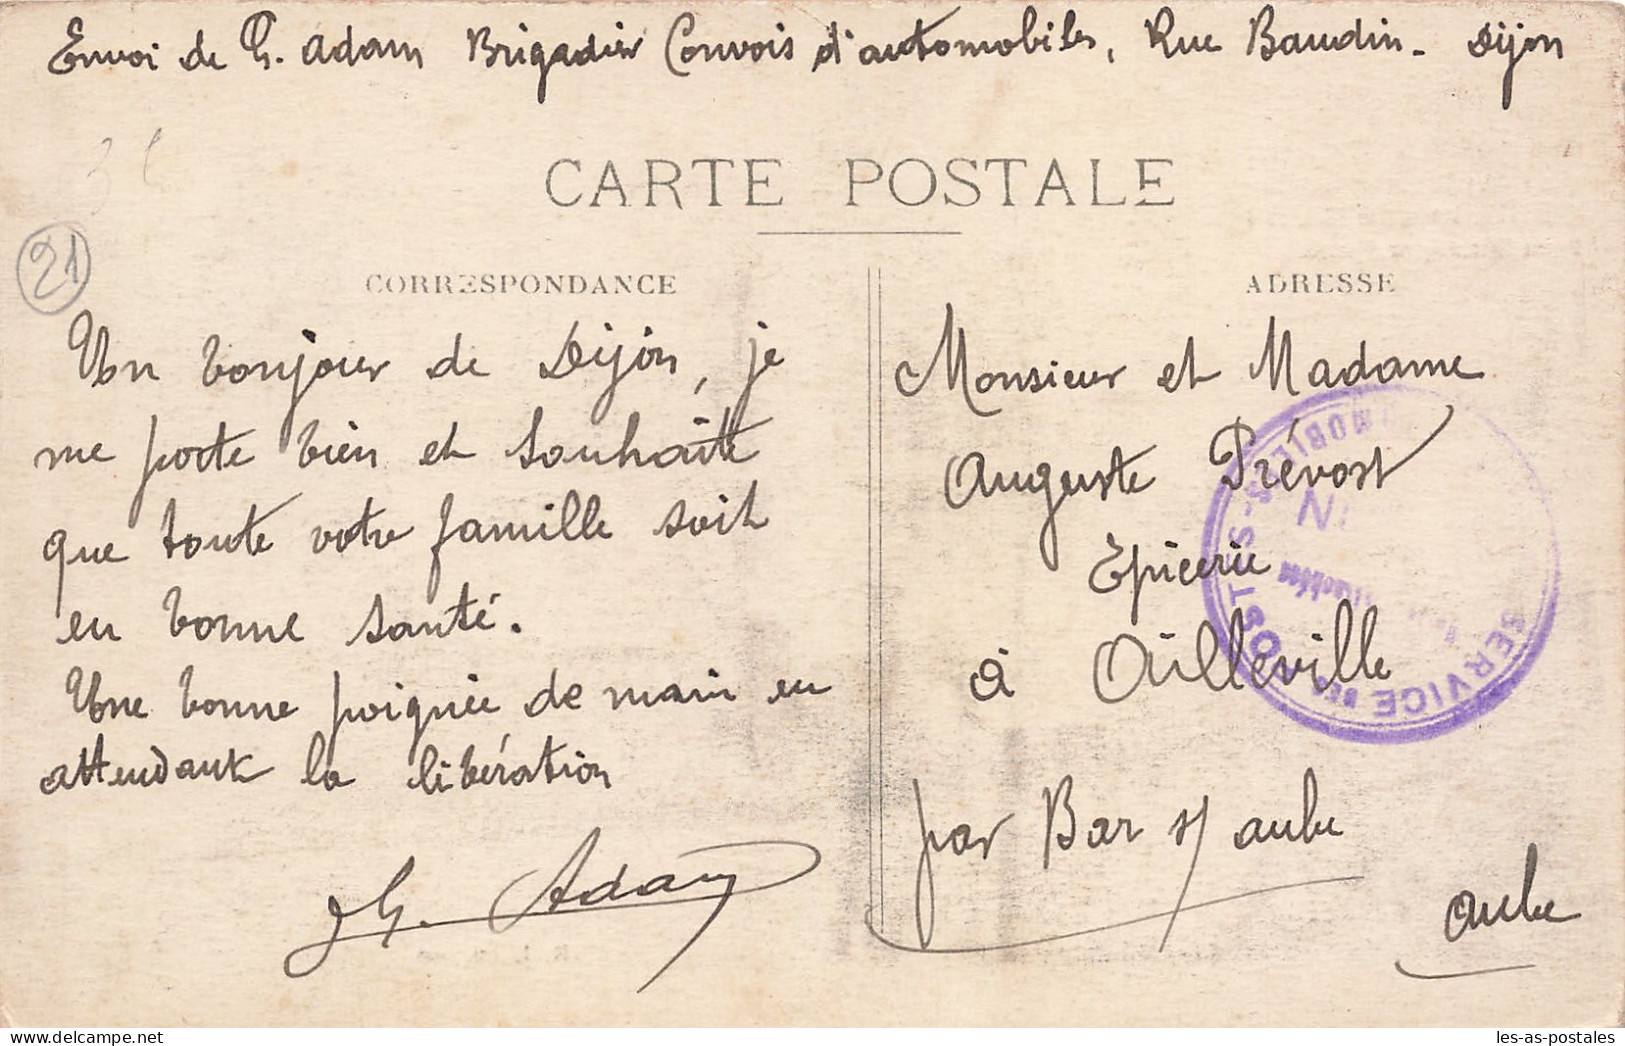 Envoi de G. Adam Brigadier Convois d'automobiles, Rue Baudin - Dijon
CARTE POSTALE
21
CORRESPONDANCE
Un bonjour de Dijon, je
me porte bien et souhaite
que toute votre famille soit
en bonne santé.
Une bonne poignée de main en
attendant la libération
G. Adam
ADRESSE
Monsieur et Madame
Auguste Prévost
Epicerie
à Ailleville
par Bar s/ aube
Aube
SERVICE DES POSTES
les-as-postales